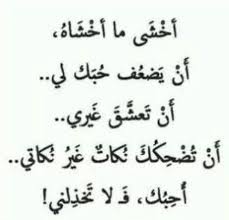 أخْشَى ما أخْشَاهُ،
أنْ يَضعُف حُبك لي..
أن تَعشَّقَ غَيري..
أن تُضْحِكُكَ نُكاتٌ غَيرُ نُكاتي..
أُحِبُك، فَـ لا تَخذِلني!